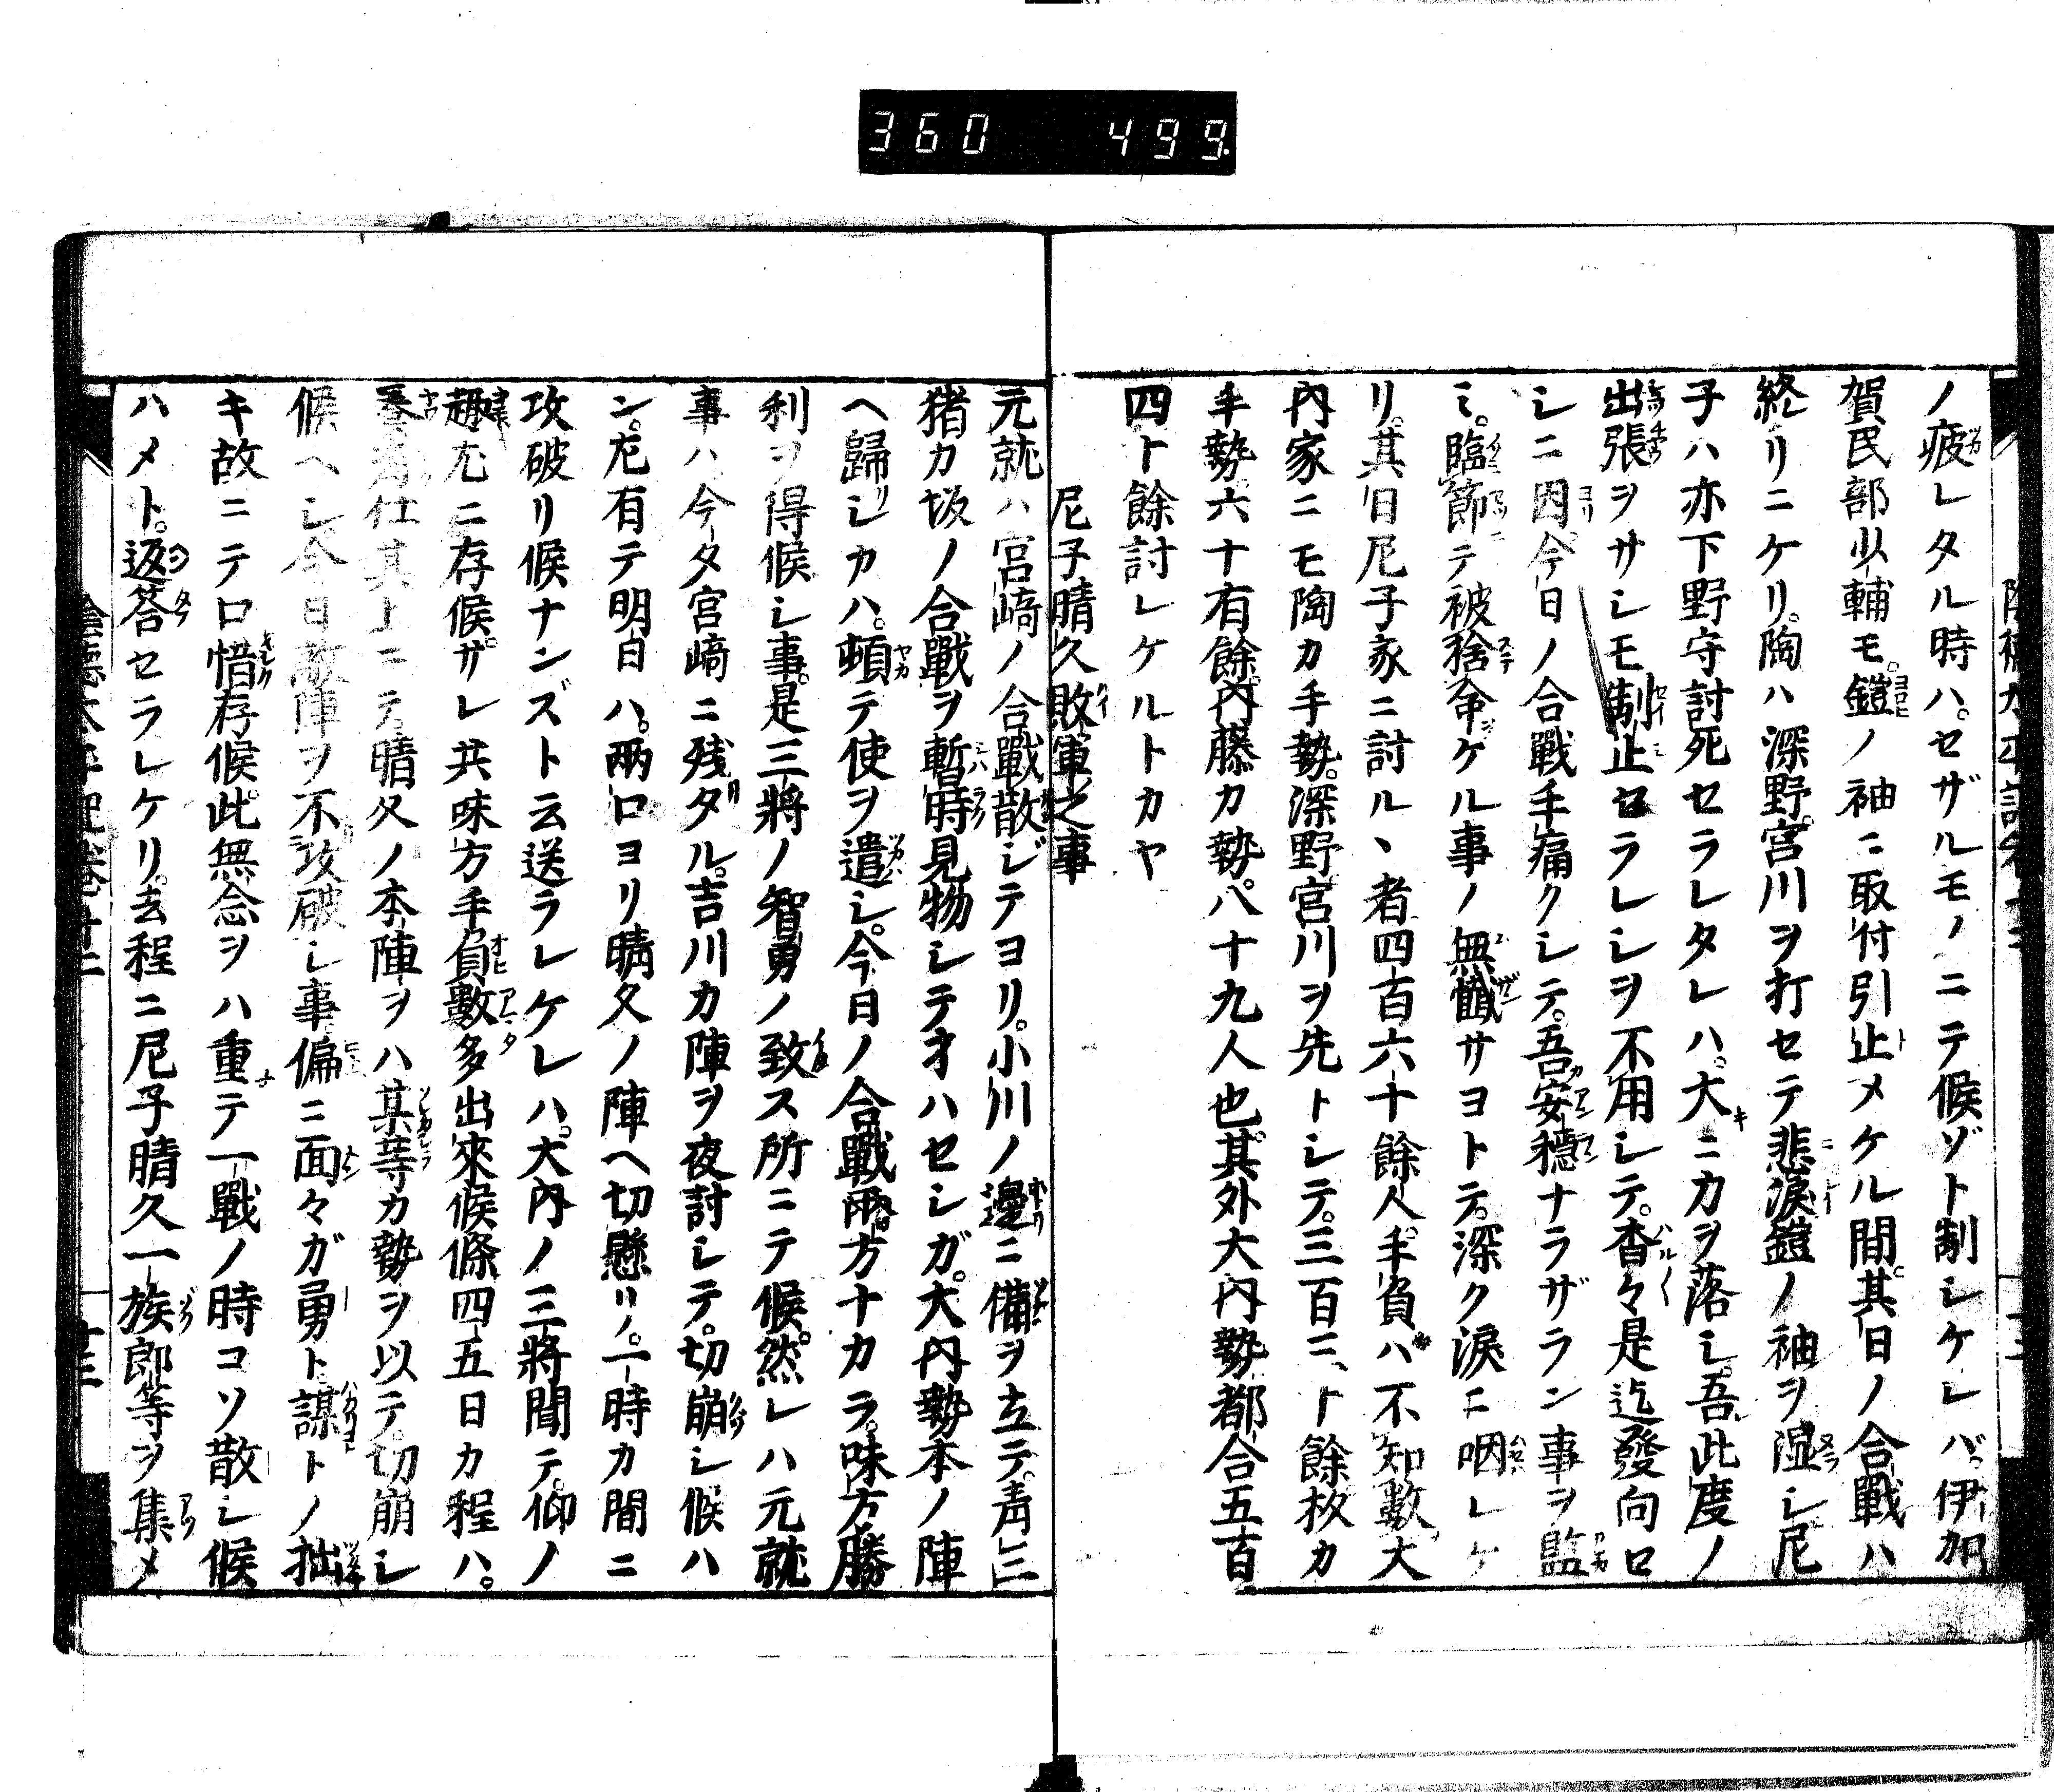 360 499.
ノ疲レタル時ハ。セザルモノニテ候ゾト制シケレバ。伊加
賀民部少輔モ。鎧ノ袖ニ取付引止メケル間。其日ノ合戰ハ
終リニケリ。陶ハ深野。宮川ヲ打セテ悲涙鎧ノ袖ヲ湿シ尼
子ハ亦下野守討死セラレタレハ。大ニカヲ落シ。吾此度ノ
出張ヲサシモ制止セラレシヲ不用シテ。杳々是迄發向ロ
シニ因今日ノ合戰手痛クシテ。吾安穩ナラザラン事ヲ監
ミ。臨節テ被捨命ケル事ノ無慚サヨトテ。深ク涙ニ咽レケ
リ。其日尼子家ニ討ルヽ者四百六十餘人。手負ハ不知數大
內家ニモ陶カ手勢。深野宮川ヲ先トシテ。三百ニ、ト餘杉カ
手勢六十有餘。內藤カ勢。八十九人也。其外大內勢都合五百
四ト餘討レケルトカヤ
尼子晴久敗軍之事
元就ハ宮﨑ノ合戰散ジテヨリ。小川ノ邊ニ備ヲ立テ。靑三
猪カ坂ノ合戰ヲ暫時見物シテオハセシガ。大內勢本ノ陣
ヘ歸シカハ。頓テ使ヲ遣シ。今日ノ合戰兩方ナカラ。味方勝
利ヲ得候シ事。是三將ノ智勇ノ致ス所ニテ候。然レハ元就
事ハ今夕宮﨑ニ残タル。吉川カ陣ヲ夜討シテ。切崩シ候ハ
ン。左有テ明日ハ。兩口ヨリ晴久ノ陣ヘ切懸リ。一時カ間ニ
攻破リ候ナンズト云送ラレケレハ。大內ノ三將聞テ。仰ノ
趣尤ニ存候。サレ共味方手負數多出來候條四五日カ程ハ。
養 仕其上ニテ。晴久ノ本陣ヲハ某等カ勢ヲ以テ。切崩シ
候ヘシ今日敵陣ヲ不攻破シ事。偏ニ面々ガ勇ト謀トノ拙
キ故ニテ口惜存候。此無念ヲハ重テ一戰ノ時コソ散シ候
ハメト。返答セラレケリ。去程ニ尼子晴久一族郎等ヲ集メ
陰德太平記卷十二 十三